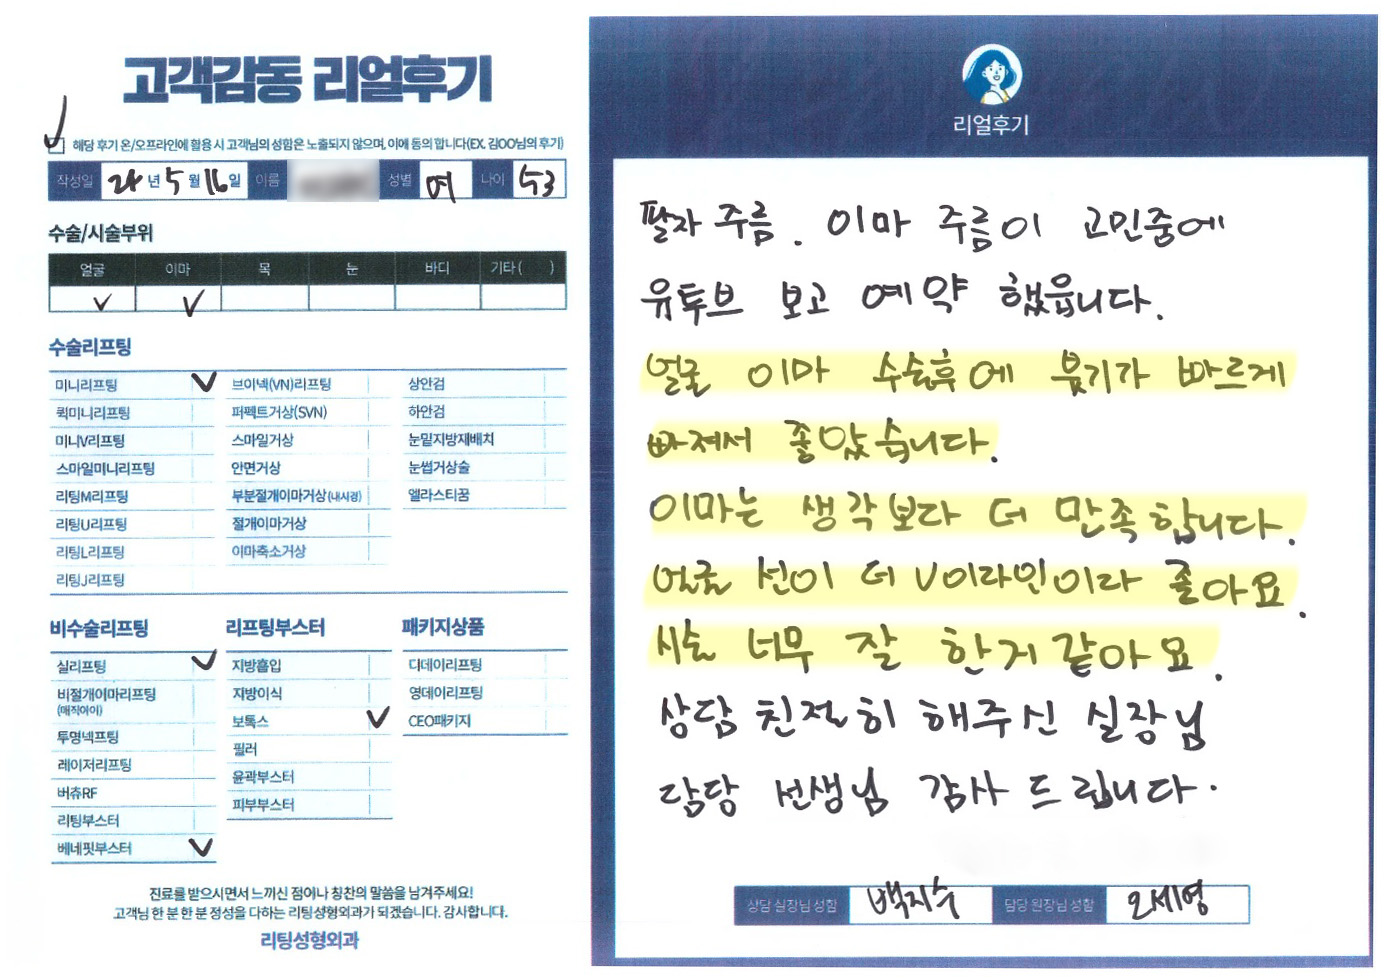 고객감동 리얼후기
해당 후기 온/오프라인에 활용 시 고객님의 성함은 노출되지 않으며, 이에 동의 합니다(EX. 김OO님의 후기)
작성일 24년 5월 16일 이름 성별 여 나이 53
수술/시술부위
얼굴 이마 목 눈 바디 기타( )
수술리프팅
미니리프팅 브이넥(VN)리프팅 상안검
퀵미니리프팅 퍼펙트거상(SVN) 하안검
미니V리프팅 스마일거상 눈밑지방재배치
스마일미니리프팅 안면거상 눈썹거상술
리팅M리프팅 부분절개이마거상(내시경) 엘라스티꿈
리팅U리프팅 절개이마거상
리팅L리프팅 이마축소거상
리팅J리프팅
비수술리프팅 리프팅부스터 패키지상품
실리프팅 지방흡입 디데이리프팅
비절개이마리프팅 지방이식 영데이리프팅
(매직아이)
투명넥프팅 보톡스 CEO패키지
레이저리프팅 필러
버츄RF 윤곽부스터
리팅부스터 피부부스터
베네핏부스터
진료를 받으시면서 느끼신 점이나 칭찬의 말씀을 남겨주세요!
고객님 한 분 한 분 정성을 다하는 리팅성형외과가 되겠습니다. 감사합니다.
리팅성형외과
리얼후기
팔자 주름. 이마 주름이 고민중에
유투브 보고 예약 했읍니다.
얼굴 이마 수술후에 붓기가 빠르게
빠져서 좋았습니다.
이마는 생각보다 더 만족합니다.
얼굴 선이 더 V이라인이라 좋아요.
시술 너무 잘 한거 같아요.
상담 친절히 해주신 실장님
담당 선생님 감사 드립니다.
상담 실장님 성함 백지수 담당 원장님 성함 오세영